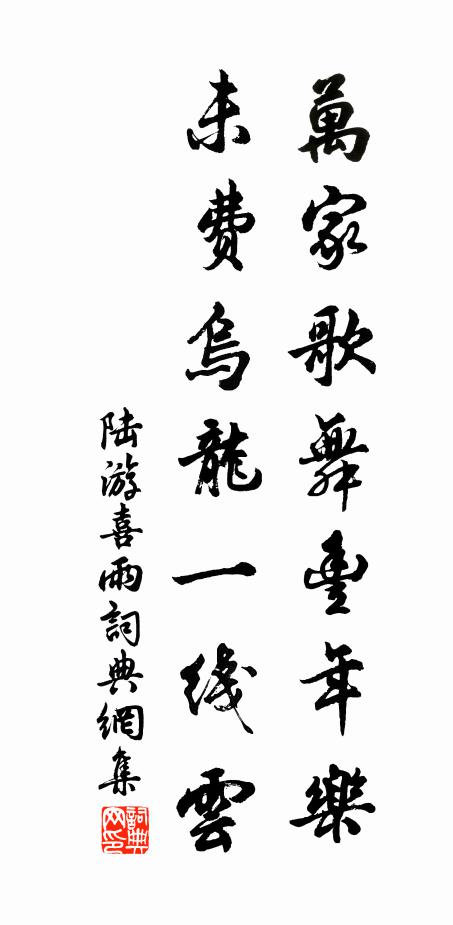 萬家歌舞豐年樂
未費烏龍一线雲
陆游喜雨詞典網集
詞典网印